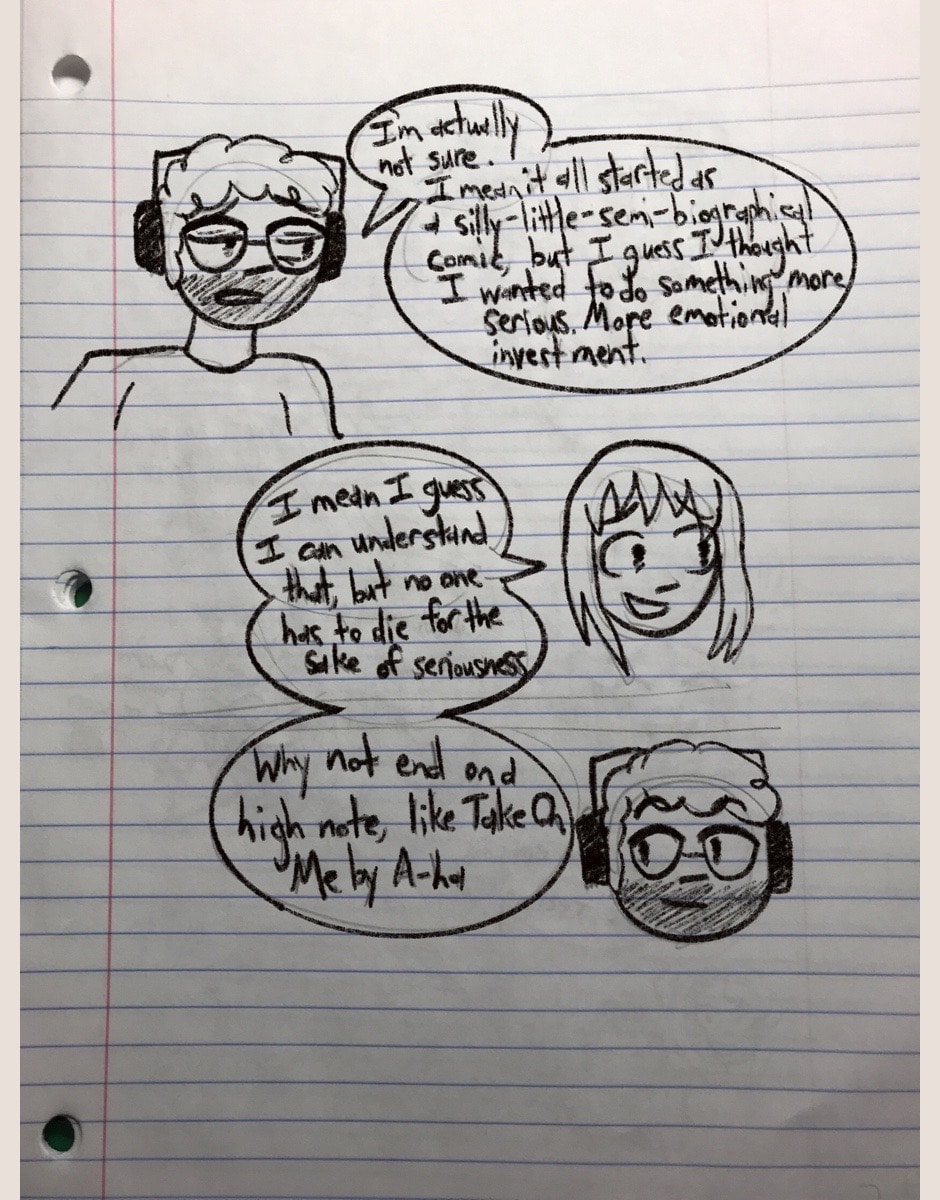 I'm actually
not sure.
I mean it all started as
a silly-little-semi-biographical
comic, but I guess I thought
I wanted to do something more
serious. More emotional
investment.
I mean I guess
I can understand
that, but no one
has to die for the
sake of seriousness
Why not end on a
high note, like Take On
Me by A-ha